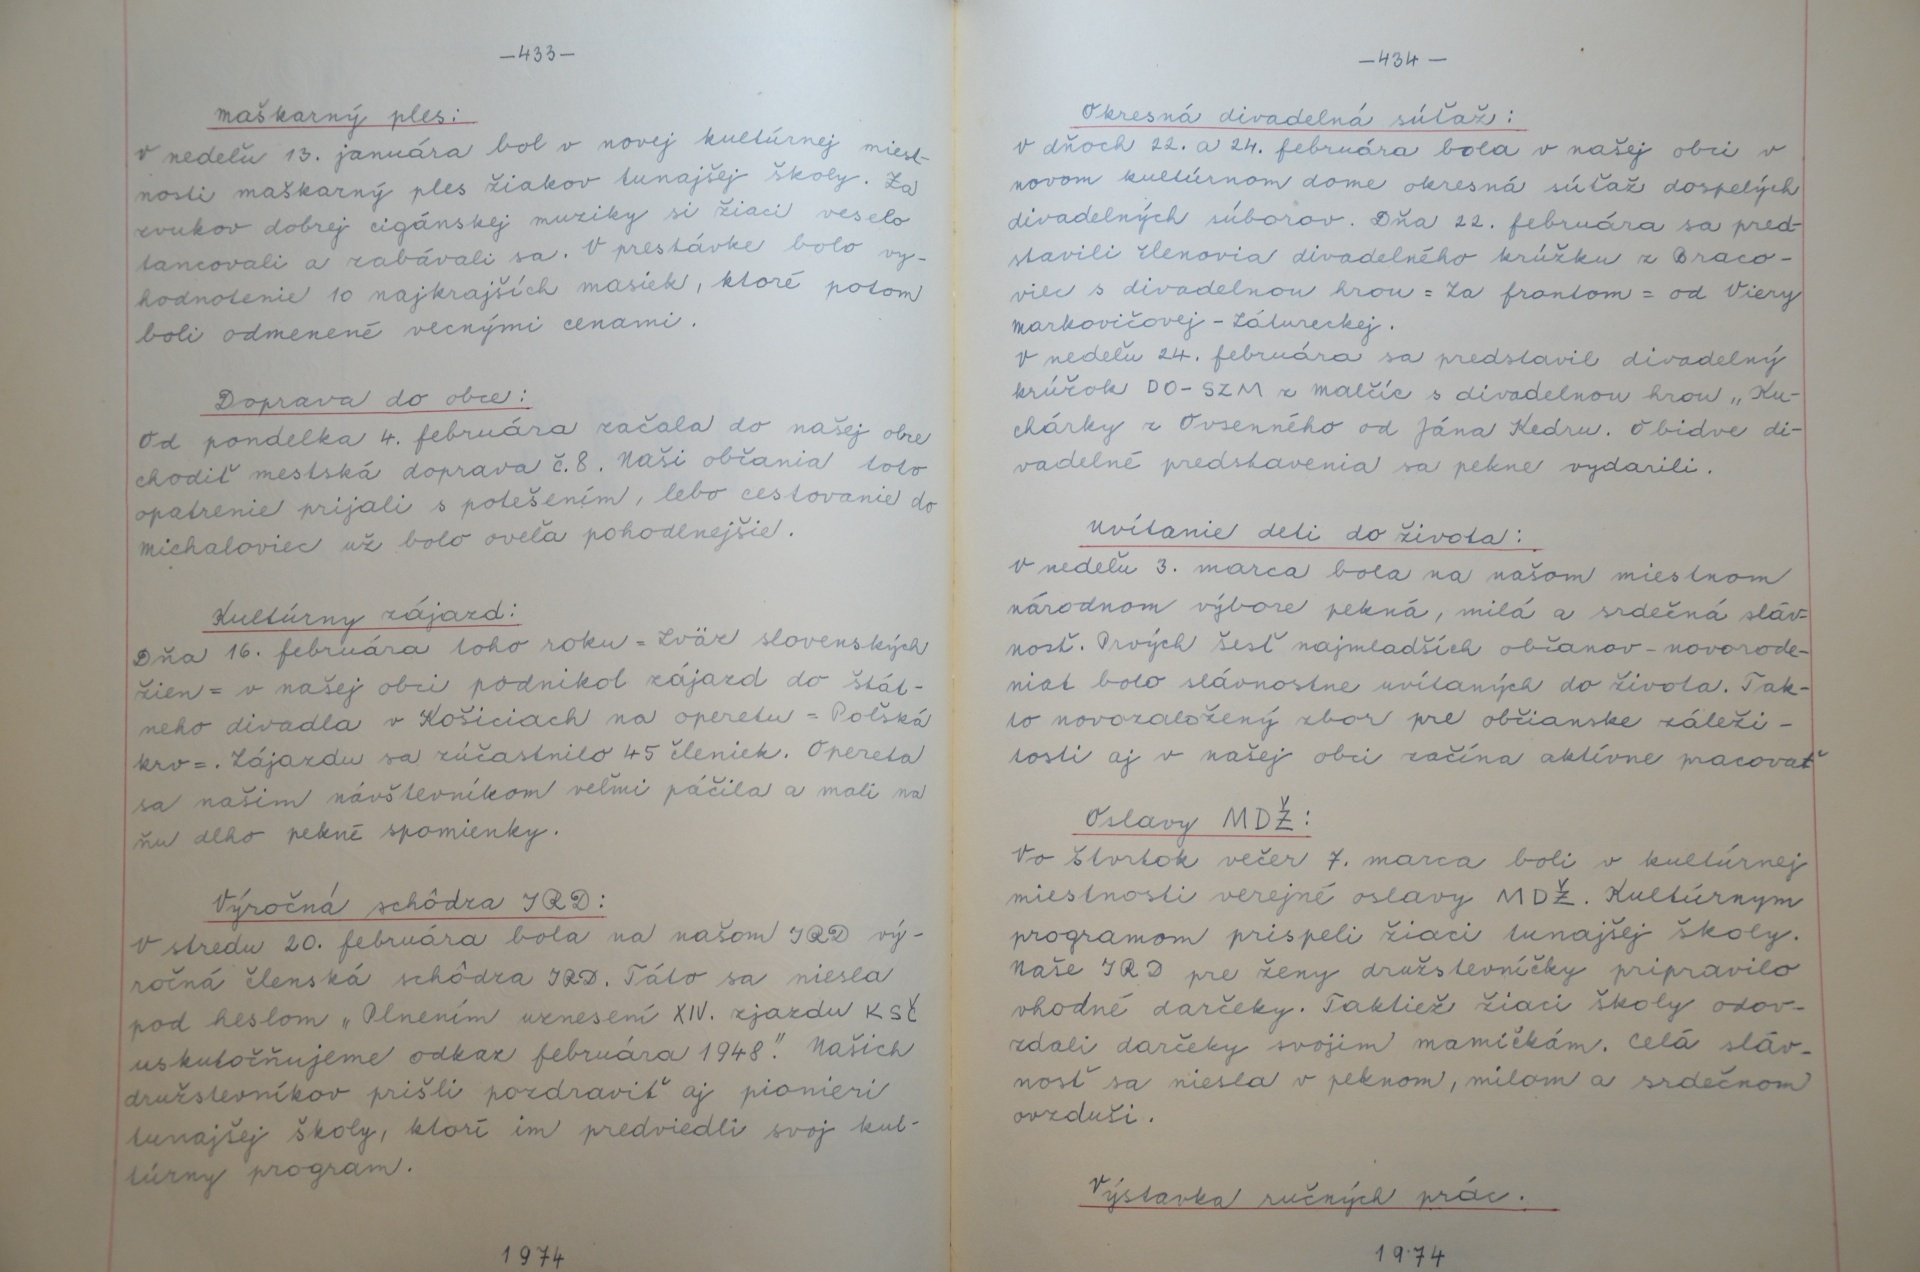 —433—
Maškarný ples:
V nedeľu 13. januára bol v novej kultúrnej miest-
nosti maškarný ples žiakov tunajšej školy. Za
zvukov dobrej cigánskej muziky si žiaci veselo
tancovali a zabávali sa. V prestávke bolo vy-
hodnotenie 10 najkrajších masiek, ktoré potom
boli odmenené vecnými cenami.
Doprava do obce:
Od pondelka 4. februára začala do našej obce
chodiť mestská doprava č.8. Naši občania toto
opatrenie prijali s potešením, lebo cestovanie do
Michaloviec už bolo oveľa pohodlnejšie.
Kultúrny zájazd:
Dňa 16. februára toho roku = Zväz slovenských
žien = v našej obci podnikol zájazd do Štát-
neho divadla v Košiciach na operetu = Poľská
krv =. Zájazdu sa zúčastnilo 45 členiek. Opereta
sa našim návštevníkom veľmi páčila a mali na
ňu dlho pekné spomienky.
Výročná schôdza JRD:
V stredu 20. februára bola na našom JRD vý-
ročná členská schôdza JRD. Táto sa niesla
pod heslom „Plnením uznesení XIV. zjazdu KSČ
uskutočňujeme odkaz februára 1948." Našich
družstevníkov prišli pozdraviť aj pionieri
tunajšej školy, ktorí im predviedli svoj kul-
túrny program.
1974
—434—
Okresná divadelná súťaž:
V dňoch 22. a 24. februára bola v našej obci v
novom kultúrnom dome okresná súťaž dospelých
divadelných súborov. Dňa 22. februára sa pred-
stavili členovia divadelného krúžku z Braco-
viec s divadelnou hrou = Za frontom = od Viery
Markovičovej - Zátureckej.
V nedeľu 24. februára sa predstavil divadelný
krúžok DO-SZM z Malčíc s divadelnou hrou „Ku-
chárky z Ovsenného od Jána Kedru. Obidve di-
vadelné predstavenia sa pekne vydarili.
Uvítanie deti do života:
V nedeľu 3. marca bola na našom miestnom
národnom výbore pekná, milá a srdečná sláv-
nosť. Prvých šesť najmladších občanov - novorode-
niat bolo slávnostne uvítaných do života. Tak-
to novozaložený zbor pre občianske záleži-
tosti aj v našej obci začína aktívne pracovať
Oslavy MDŽ:
Vo štvrtok večer 7. marca boli v kultúrnej
miestnosti verejné oslavy MDŽ. Kultúrnym
programom prispeli žiaci tunajšej školy.
Naše JRD pre ženy družstevníčky pripravilo
vhodné darčeky. Taktiež žiaci školy odov-
zdali darčeky svojim mamičkám. Celá sláv-
nosť sa niesla v peknom, milom a srdečnom
ovzduší.
Výstavka ručných prác.
1974